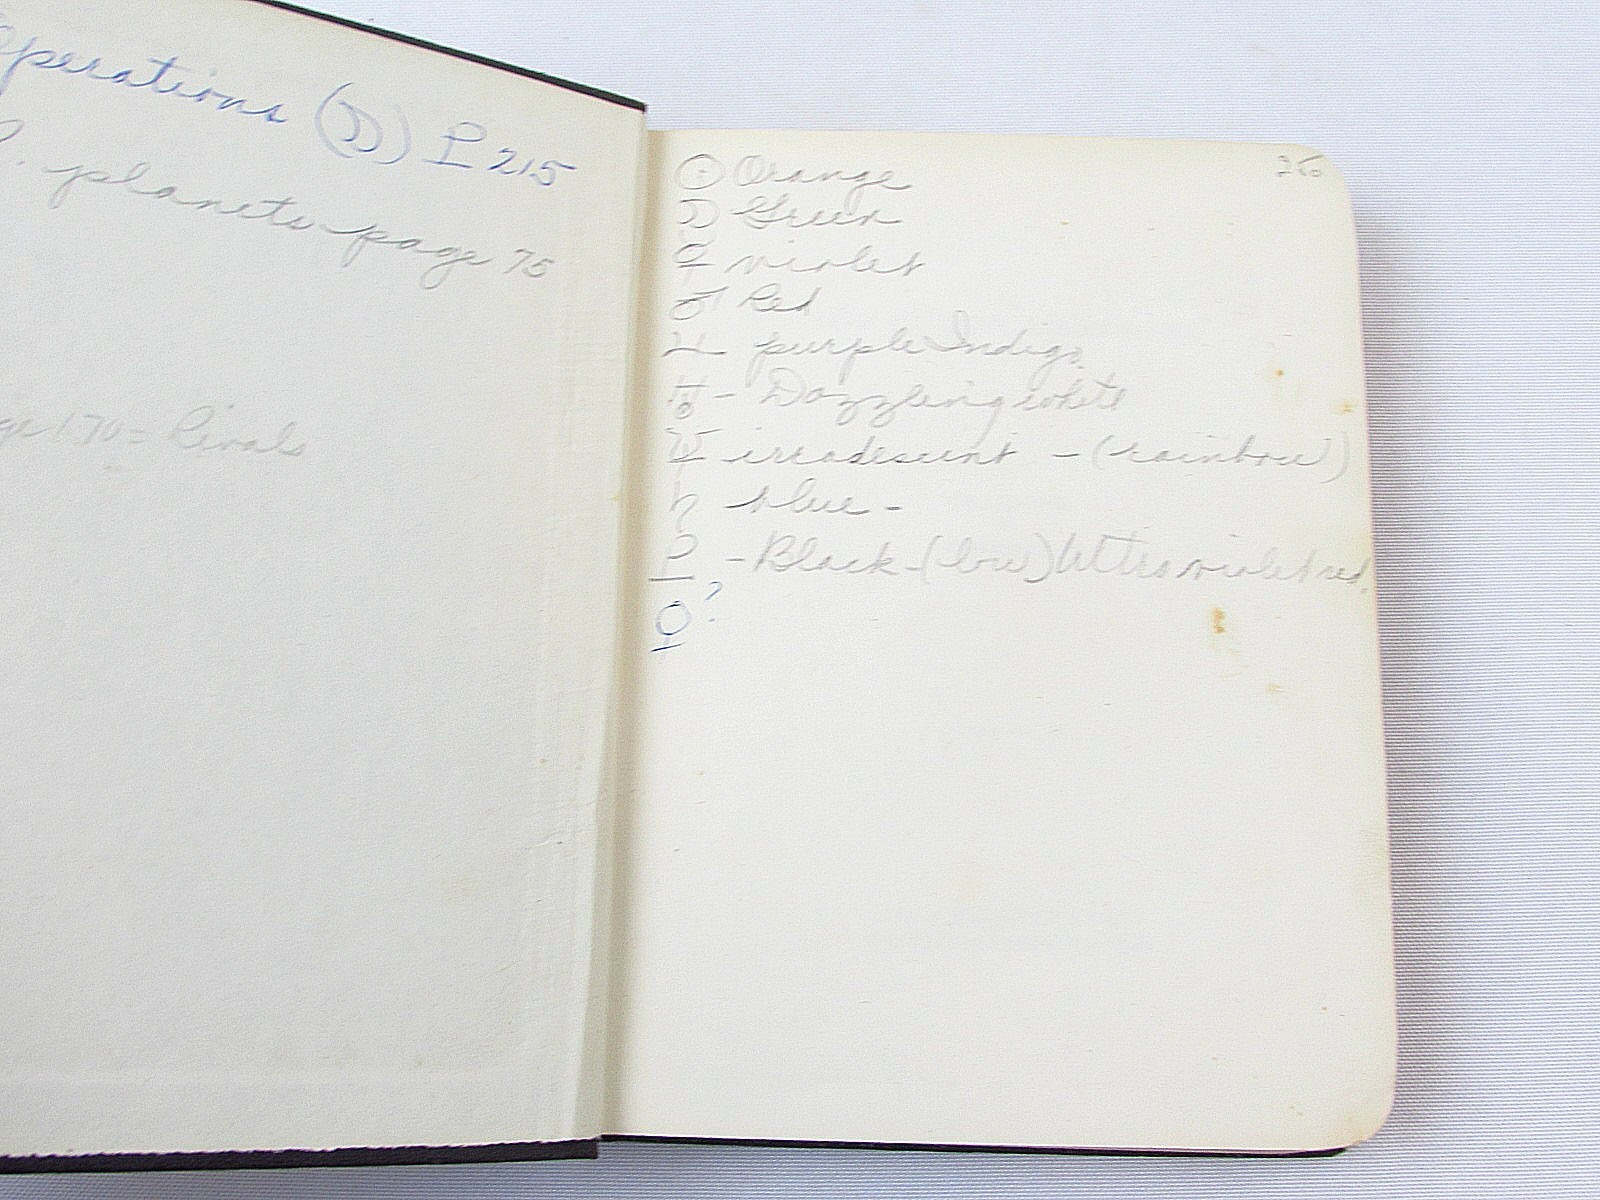 Operations (☽) P 215
planets - page 75
170 = Rivals
250
☉ Orange
☽ Green
♀ violet
♂ Red
♃ purple Indigo
♅ - Dazzling white
♆ irradescent - (rainbow)
♄ blue -
P - Black - (low) Ultra violet red.
?